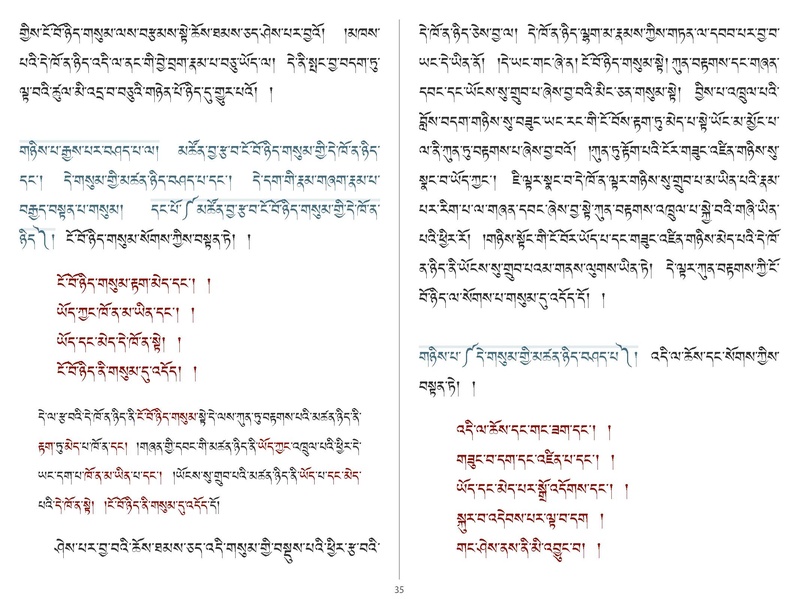 གྱིས་ངོ་བོ་ཉིད་གསུམ་ལས་བརྩམས་སྟེ་ཆོས་ཐམས་ཅད་ཤེས་པར་བྱའོ། །མཁས་
པའི་དེ་ཁོ་ན་ཉིད་འདི་ལ་ནང་གི་བྱེ་བྲག་རྣམ་པ་བཅུ་ཡོད་ལ། དེ་ནི་སྤང་བྱ་བདག་ཏུ་
ལྟ་བའི་ཚུལ་མི་འདྲ་བ་བཅུའི་གཉེན་པོ་ཉིད་དུ་གྱུར་པའོ། །
གཉིས་པ་རྒྱས་པར་བཤད་པ་ལ། མཚོན་བྱ་རྩ་བ་ངོ་བོ་ཉིད་གསུམ་གྱི་དེ་ཁོ་ན་ཉིད་
དང་། དེ་གསུམ་གྱི་མཚན་ཉིད་བཤད་པ་དང་། དེ་དག་གི་རྣམ་གཞག་རྣམ་པ་
བརྒྱད་བསྟན་པ་གསུམ། དང་པོ་༼མཚོན་བྱ་རྩ་བ་ངོ་བོ་ཉིད་གསུམ་གྱི་དེ་ཁོ་ན་
ཉིད་༽། ངོ་བོ་ཉིད་གསུམ་སོགས་ཀྱིས་བསྟན་ཏེ། །
ངོ་བོ་ཉིད་གསུམ་རྟག་མེད་དང་། །
ཡོད་ཀྱང་ཁོ་ན་མ་ཡིན་དང་། །
ཡོད་དང་མེད་དེ་ཁོ་ན་སྟེ། །
ངོ་བོ་ཉིད་ནི་གསུམ་དུ་འདོད། །
དེ་ལ་རྩ་བའི་དེ་ཁོ་ན་ཉིད་ནི་ངོ་བོ་ཉིད་གསུམ་སྟེ་དེ་ལས་ཀུན་ཏུ་བརྟགས་པའི་མཚན་ཉིད་ནི་
རྟག་ཏུ་མེད་པ་ཁོ་ན་དང་། །གཞན་གྱི་དབང་གི་མཚན་ཉིད་ནི་ཡོད་ཀྱང་འཁྲུལ་པའི་ཕྱིར་དེ་
ཡང་དག་པ་ཁོ་ན་མ་ཡིན་པ་དང་། །ཡོངས་སུ་གྲུབ་པའི་མཚན་ཉིད་ནི་ཡོད་པ་དང་མེད་
པའི་དེ་ཁོ་ན་སྟེ། །ངོ་བོ་ཉིད་ནི་གསུམ་དུ་འདོད་དོ།
ཤེས་པར་བྱ་བའི་ཆོས་ཐམས་ཅད་འདི་གསུམ་གྱི་བསྡུས་པའི་ཕྱིར་རྩ་བའི་
དེ་ཁོ་ན་ཉིད་ཅེས་བྱ་ལ། དེ་ཁོ་ན་ཉིད་ལྷག་མ་རྣམས་ཀྱིས་གཏན་ལ་དབབ་པར་བྱ་བ་
ཡང་དེ་ཡིན་ནོ། །དེ་ཡང་གང་ཞེ་ན། ངོ་བོ་ཉིད་གསུམ་སྟེ། ཀུན་བརྟགས་དང་གཞན་
དབང་དང་ཡོངས་སུ་གྲུབ་པ་ཞེས་བྱ་བའི་མིང་ཅན་གསུམ་སྟེ། བྱིས་པ་འཁྲུལ་པའི་
བློས་བདག་གཉིས་སུ་བཟུང་ཡང་རང་གི་ངོ་བོས་རྟག་ཏུ་མེད་པ་སྟེ་ཡོང་མ་མྱོང་པ་
ལ་ནི་ཀུན་ཏུ་བརྟགས་པ་ཞེས་བྱ་བའོ། །ཀུན་ཏུ་རྟོག་པའི་ངོར་གཟུང་འཛིན་གཉིས་སུ་
སྣང་བ་ཡོད་ཀྱང་། ཇི་ལྟར་སྣང་བ་དེ་ཁོ་ན་ལྟར་གཉིས་སུ་གྲུབ་པ་མ་ཡིན་པའི་རྣམ་
པར་རིག་པ་ལ་གཞན་དབང་ཞེས་བྱ་སྟེ་ཀུན་བརྟགས་འཁྲུལ་པ་སྐྱེ་བའི་གཞི་ཡིན་
པའི་ཕྱིར་རོ། །གཉིས་སྟོང་གི་ངོ་བོར་ཡོད་པ་དང་གཟུང་འཛིན་གཉིས་མེད་པའི་དེ་ཁོ་
ན་ཉིད་ནི་ཡོངས་སུ་གྲུབ་པའམ་གནས་ལུགས་ཡིན་ཏེ། དེ་ལྟར་ཀུན་བརྟགས་ཀྱི་ངོ་
བོ་ཉིད་ལ་སོགས་པ་གསུམ་དུ་འདོད་དོ། །
གཉིས་པ་༼དེ་གསུམ་གྱི་མཚན་ཉིད་བཤད་པ་༽། འདི་ལ་ཆོས་དང་སོགས་ཀྱིས་
བསྟན་ཏེ། །
འདི་ལ་ཆོས་དང་གང་ཟག་དང་། །
གཟུང་བ་དག་དང་འཛིན་པ་དང་། །
ཡོད་དང་མེད་པར་སྒྲོ་འདོགས་དང་། །
སྐུར་བ་འདེབས་པར་ལྟ་བ་དག །
གང་ཤེས་ནས་ནི་མི་འབྱུང་བ། །
35